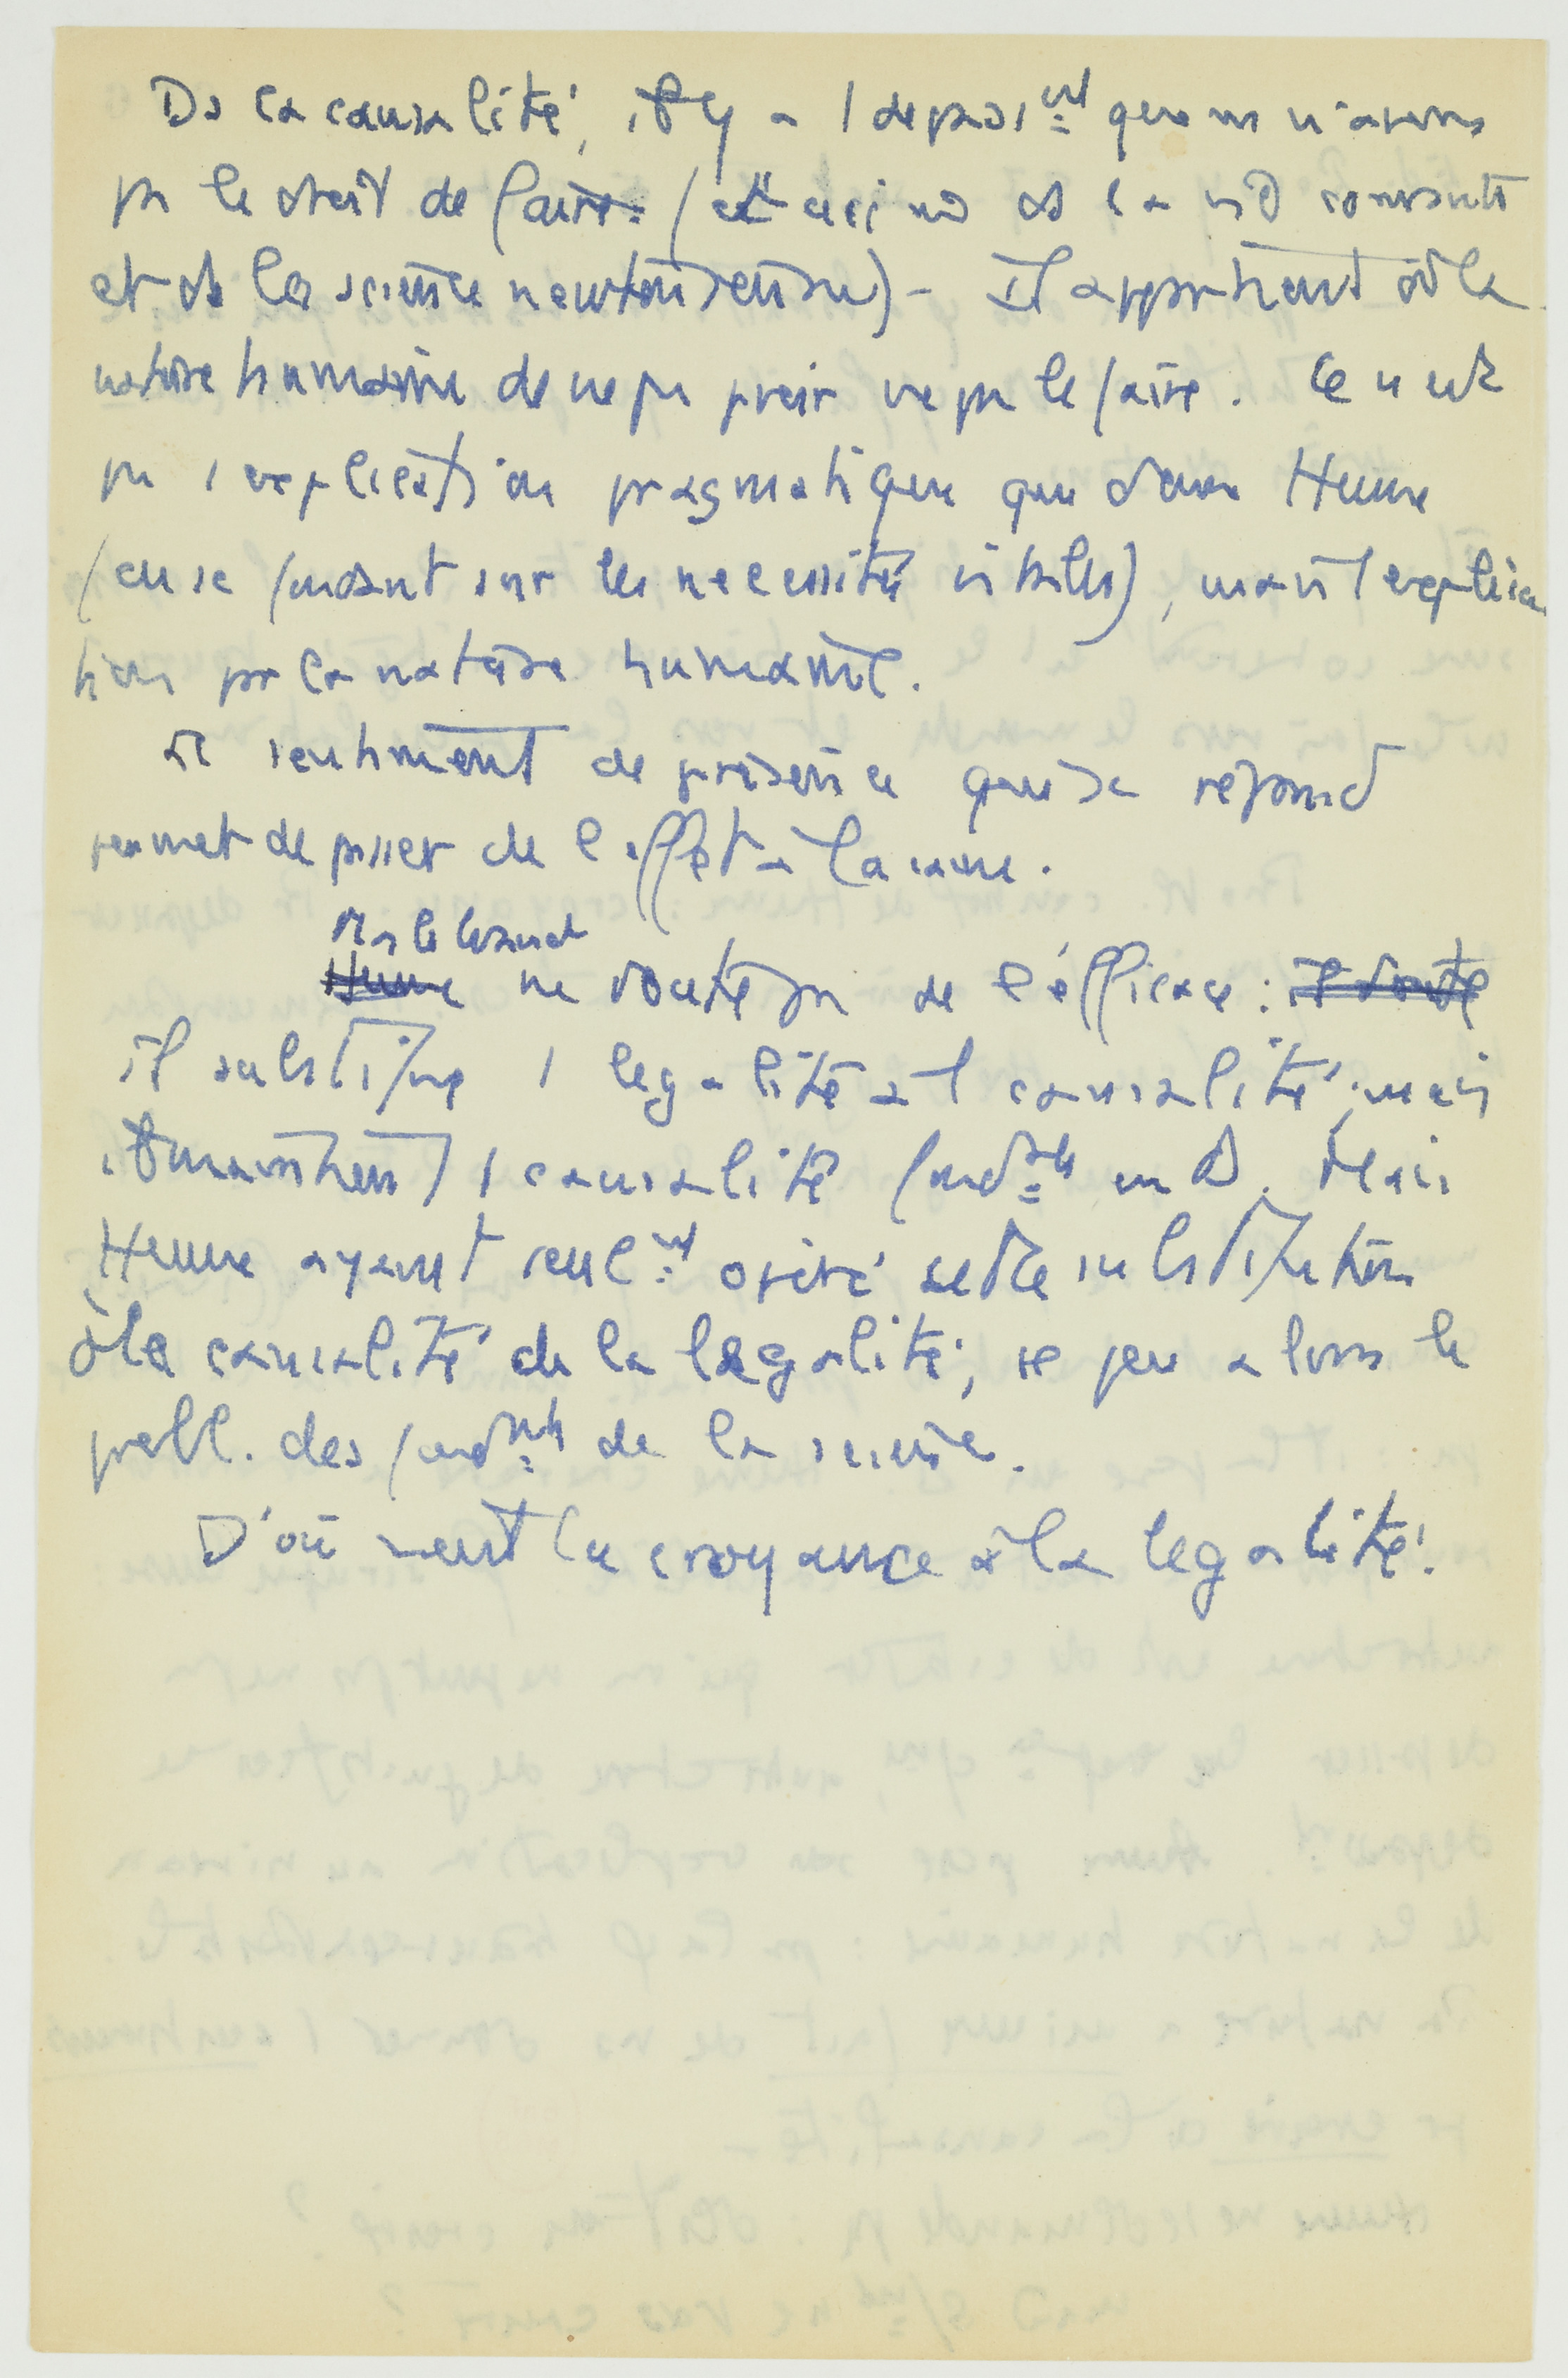 Ds la causalité, il y a 1 depasst que ns n'avons
pas le droit de faire (et ceci ds la vie courante
et ds la science newtonienne) - Il appartient à la
nature humaine de ne pas pvoir ne pas le faire. Ce n'est
pas 1 explication pragmatique que donne Hume
(en se fondant sur les nécessités vitales), mais 1 explica
tion par la nature humaine.
Le sentiment de présence qui se répand
permet de passer de l'effet à la cause.
Malebranche
Hume ne doute pas de l'efficace : il doute
il substitue 1 légalité à 1 causalité ; mais
il maintient 1 causalité fondée en D. Mais
Hume ayant seult opéré cette substitution
à la causalité de la légalité, se pose alors le
probl. des fondts de la science.
D'où vient la croyance à la légalité.